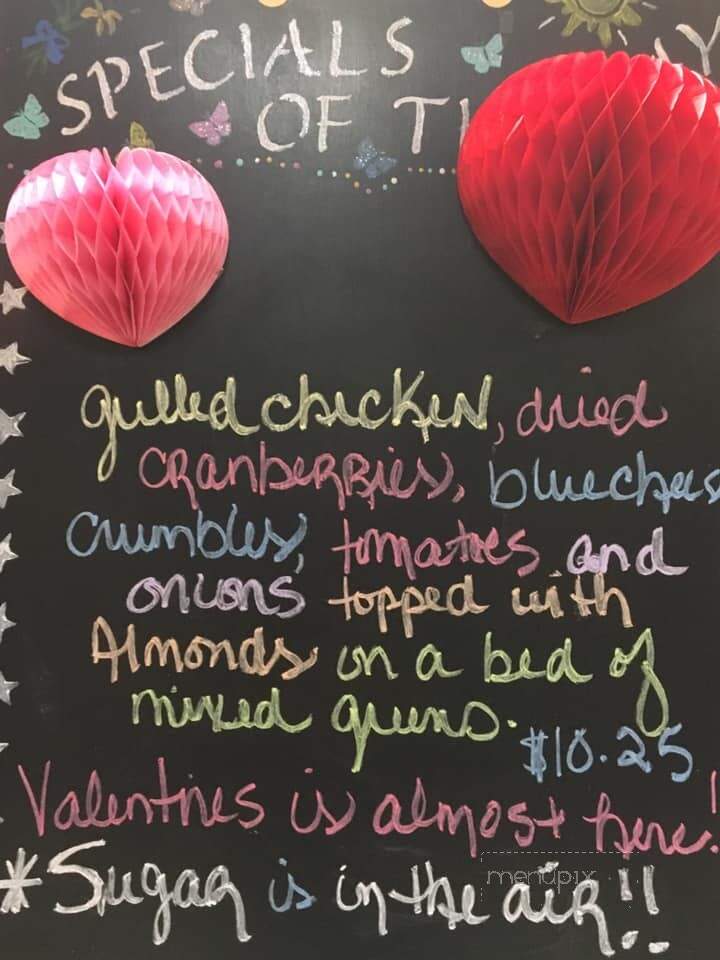 SPECIALS
OF
grilled chicken, dried
cranberries, bluechees
crumbles, tomatoes and
onions topped with
Almonds on a bed of
mixed greens.
$10.25
Valentines is almost here!
*Sugar is in the air!!
menupix